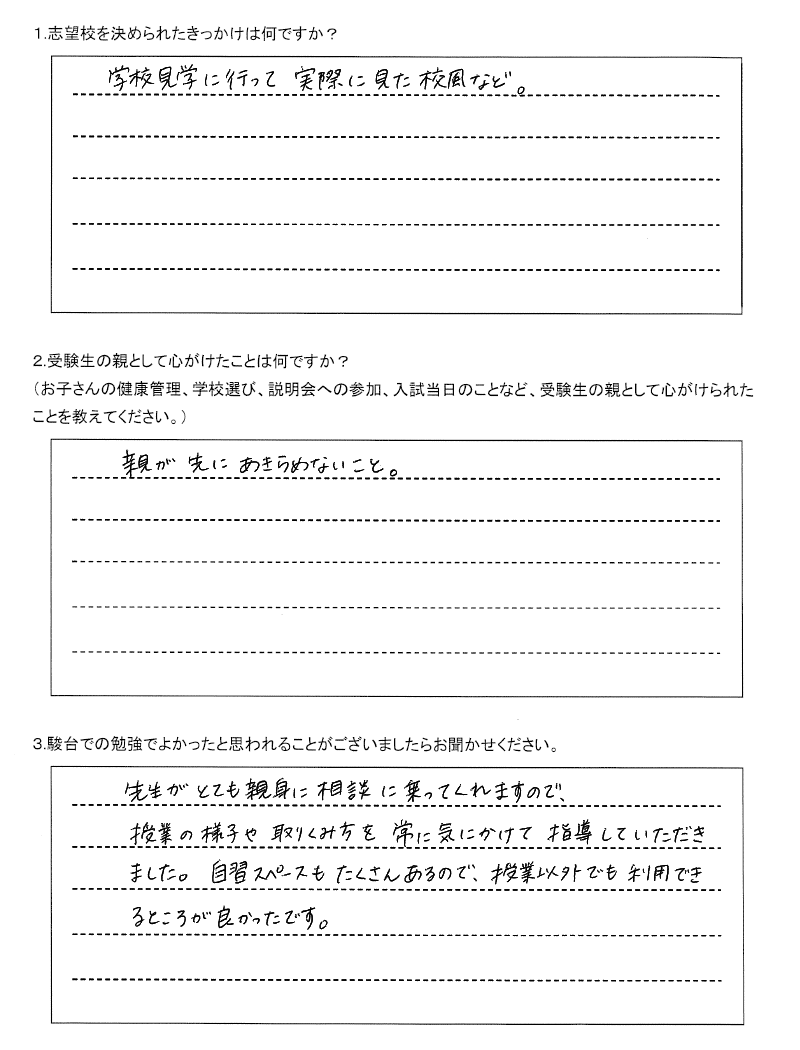 1.志望校を決められたきっかけは何ですか？
学校見学に行って 実際に見た校風など。
2.受験生の親として心がけたことは何ですか？
（お子さんの健康管理、学校選び、説明会への参加、入試当日のことなど、受験生の親として心がけられた
ことを教えてください。）
親が 先に あきらめないこと。
3.駿台での勉強でよかったと思われることがございましたらお聞かせください。
先生が とても親身に 相談 に 乗ってくれますので、
授業の様子や 取りくみ方を 常に気にかけて 指導していただき
ました。 自習スペースも たくさんあるので、授業以外でも 利用でき
るところが良かったです。